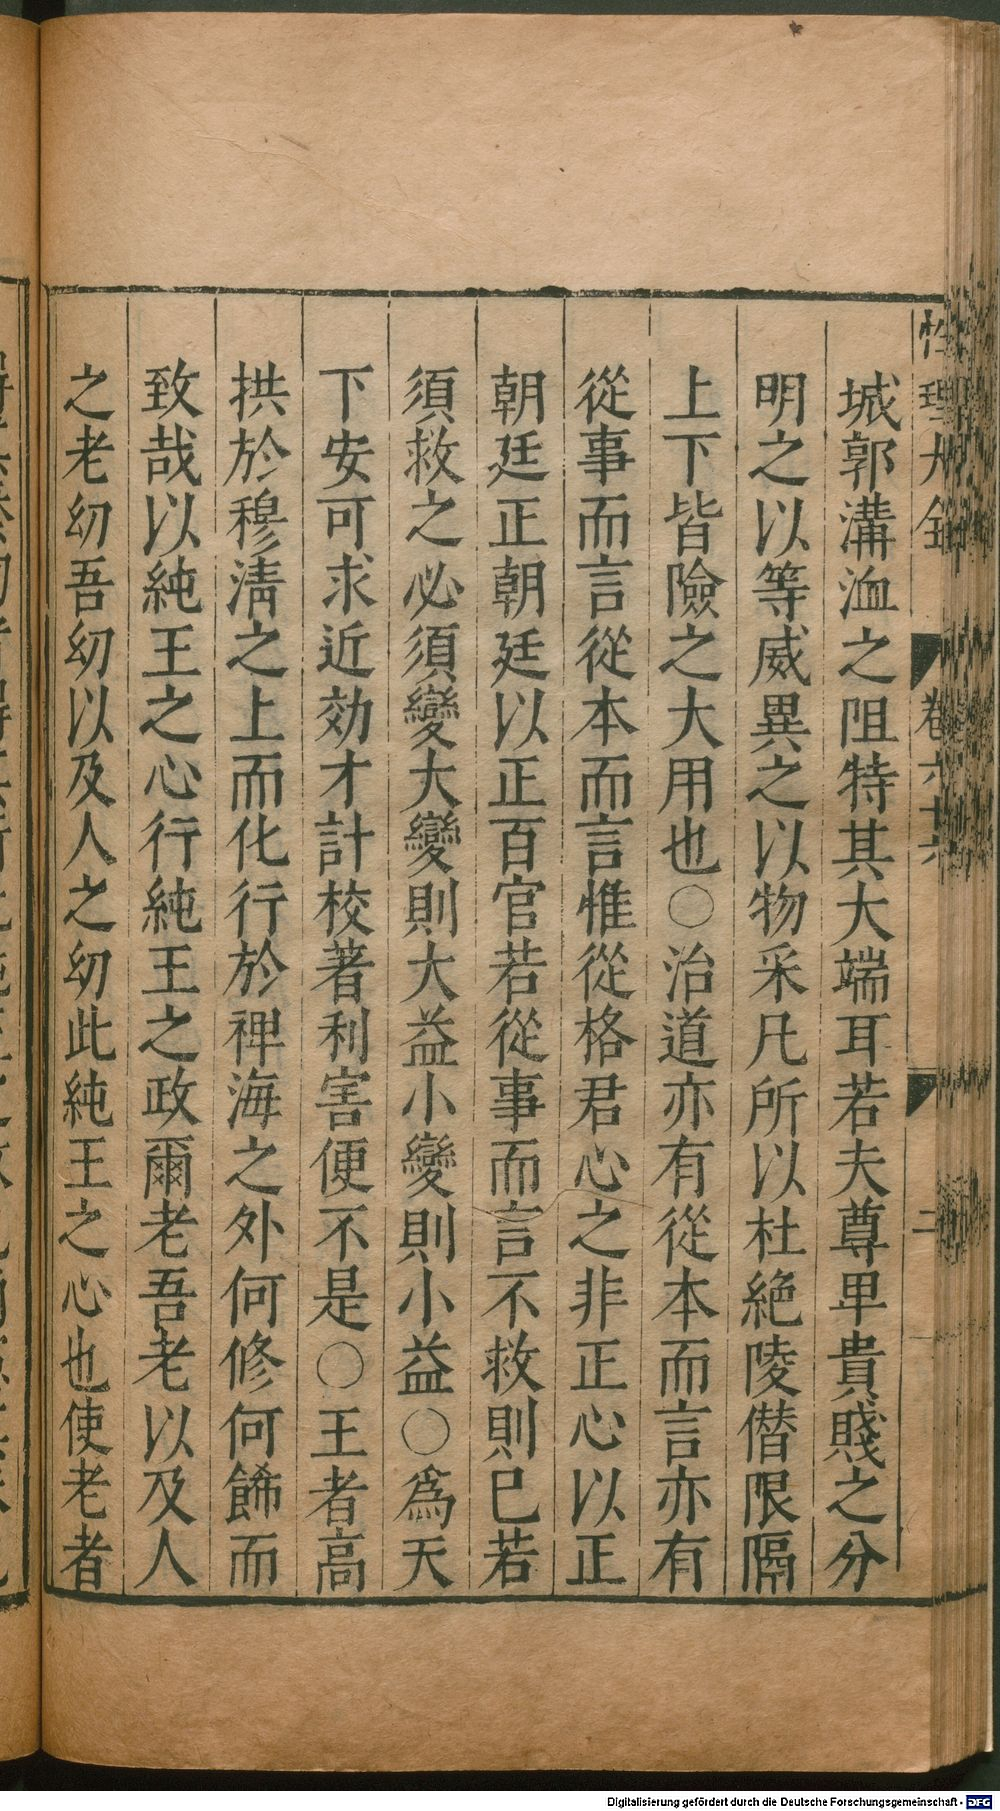 性理大全 卷六十六 二
城郭溝洫之阻特其大端耳若夫尊卑貴賤之分
明之以等威異之以物采凡所以杜絕陵僭限隔
上下皆險之大用也○治道亦有從本而言亦有
從事而言從本而言惟從格君心之非正心以正
朝廷正朝廷以正百官若從事而言不救則已若
須救之必須變大變則大益小變則小益○爲天
下安可求近効才計校著利害便不是○王者高
拱於穆淸之上而化行於裨海之外何修何飾而
致哉以純王之心行純王之政爾老吾老以及人
之老幼吾幼以及人之幼此純王之心也使老者
Digitalisierung gefördert durch die Deutsche Forschungsgemeinschaft - DFG